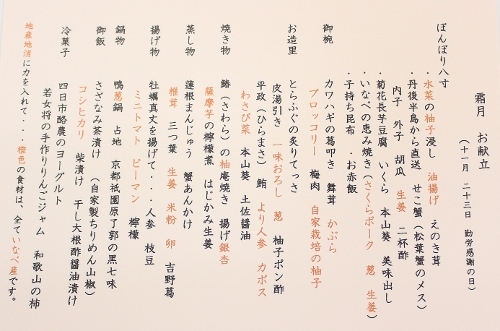 霜月　お献立
（十一月　二十三日　勤労感謝の日）
ぼんぼり八寸
・水菜の柚子浸し　油揚げ　えのき茸
・丹後半島から直送　せこ蟹（松葉蟹のメス）
内子　外子　胡瓜　生姜　二杯酢
・菊花長芋豆腐　いくら　本山葵　美味出し
・いなべの恵み焼き（さくらポーク　葱　生姜）
・子持ち昆布　・お赤飯
御椀
カワハギの葛叩き　舞茸　かぶら
ブロッコリー　梅肉　自家栽培の柚子
お造里
とらふぐの炙りてっさ
皮湯引き　一味おろし　葱　柚子ポン酢
平政（ひらまさ）　鮪　より人参　カボス
わさび菜　本山葵　土佐醤油
焼き物
鰆（さわら）の柚庵焼き　揚げ銀杏
薩摩芋の檸檬煮　はじかみ生姜
蒸し物
蓮根まんじゅう　蟹あんかけ
椎茸　三つ葉　生姜　米粉　卵　吉野葛
揚げ物
牡蠣真丈を揚げて・・・人参　枝豆
ミニトマト　ピーマン　檸檬
鍋物
鴨葱鍋　占地　京都祇園原了郭の黒七味
御飯
さざなみ茶漬け　（自家製ちりめん山椒）
コシヒカリ　柴漬け　干し大根酢醤油漬け
冷菓子
四日市酪農のヨーグルト
若女将の手作りりんごジャム　和歌山の柿
地産地消に力を入れて・・・橙色の食材は、全ていなべ産です。